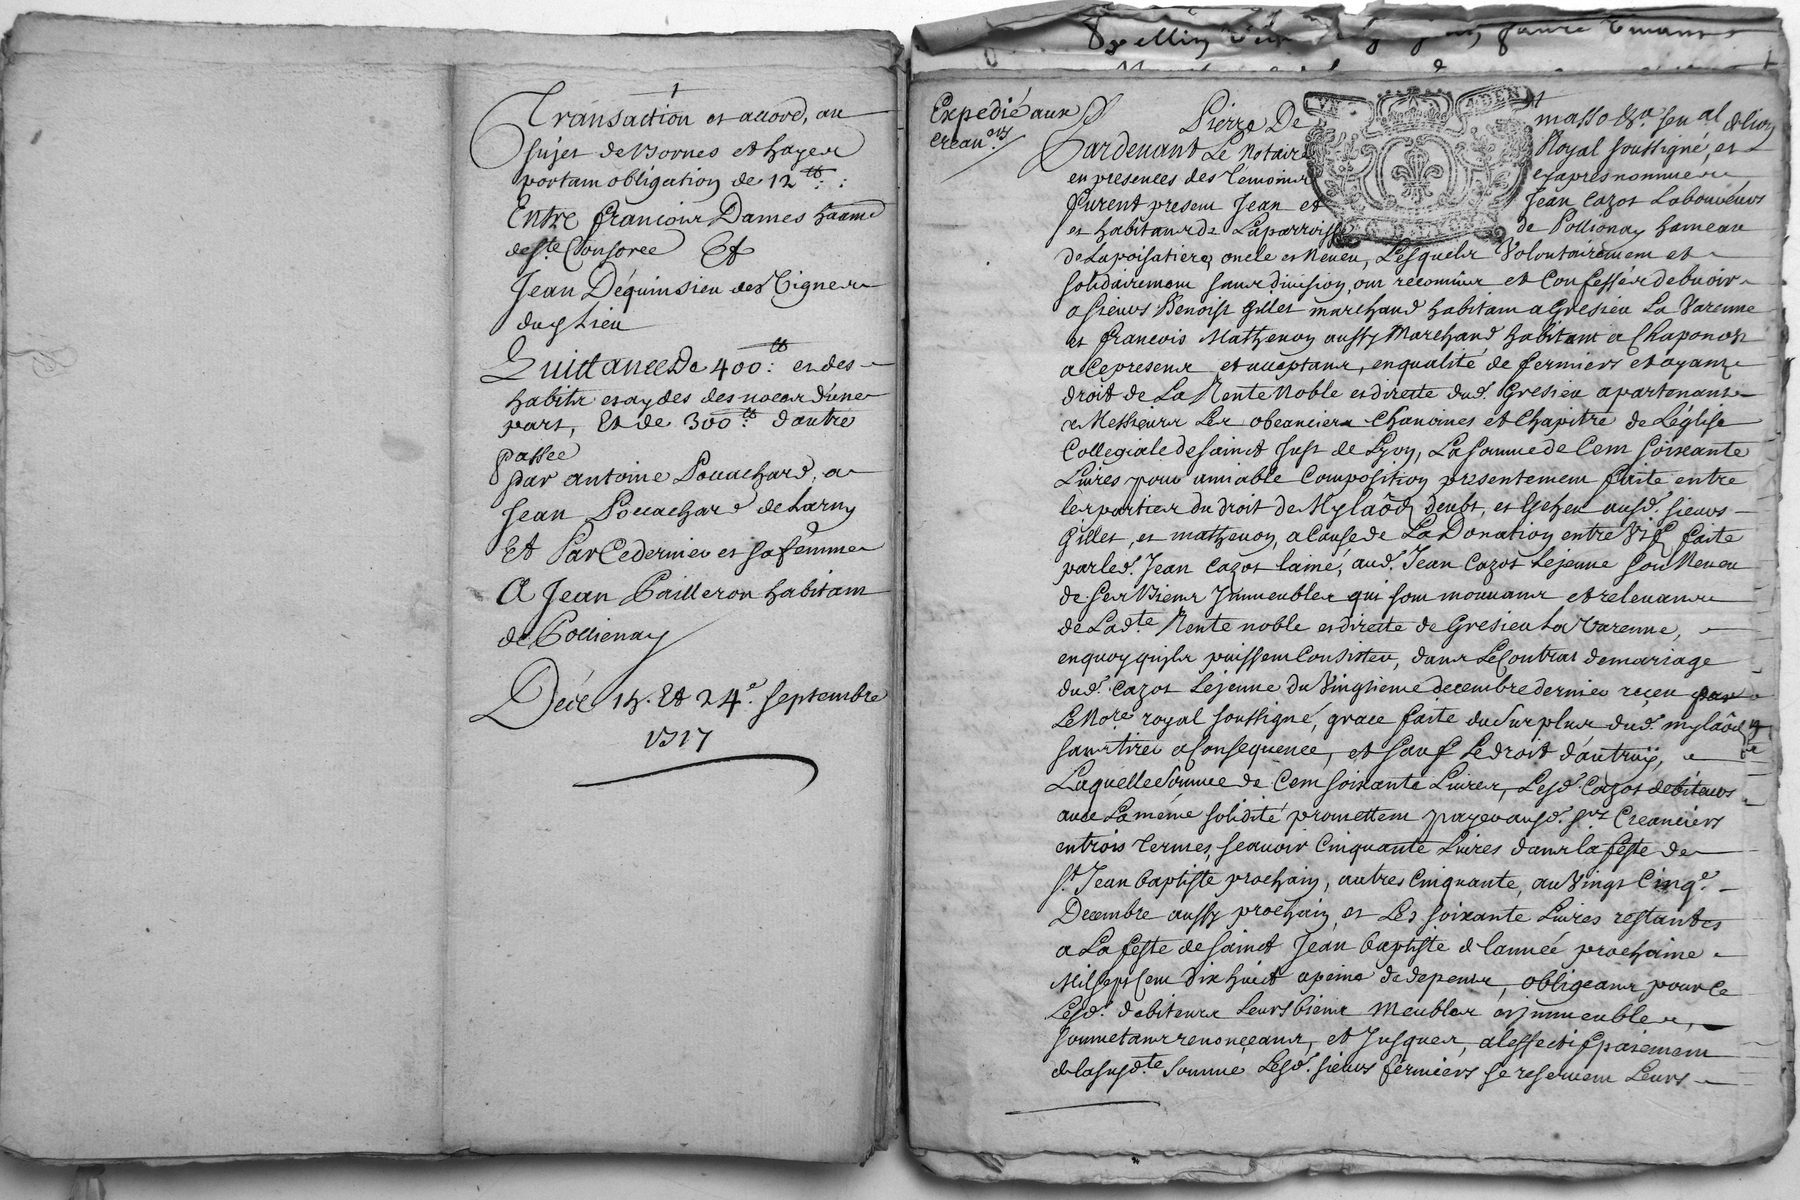 Transaction et accord, au
sujet de Bornes et hayes
portant obligation de 12 tt :
Entre françois Dames haame
de ste Consorce Et
Jean Déquinsieu des Vignes
dud Lieu
Quittance De 400 tt : et des
habits et aydes des noces d'une
part, Et de 300 tt : d'autre
passée
par antoine Pouachard, a
Jean Pouachard de Larny
Et Par Ce dernier et sa femme
A Jean Pailleron habitant
de Pollienay
De 15. Et 24e. septembre
1717
Expedié aux
crean.ers
Pierre De masso &a. sen.al de Lion
Pardevant Le Notaire Royal soussigné, et
en presences des temoins cy apres nommes
furent present Jean et Jean Cazot Laboureurs
et habitans de La parroisse de Pollionay hameau
de La poisatiere, oncle et Neveu, Lesquels Volontairement et
solidairement sans division, ont reconnus et Confessés debvoir
a sieurs Benoist Gillet marchand habitant a Gresieu La Varenne
et françois Mathevon aussy Marchand habitant a Chaponost
a Ce presens, et acceptans, en qualité de fermiers et ayans
droit de La Rente Noble et directe dud. Gresieu apartenant
a Messieurs Les obeanciers Chanoines et Chapitre de L'église
Collegiale de sainct Just de Lyon, La somme de Cent soixante
Livres pour amiable Composition presentement faite entre
les parties du droit de Mylaôd deubt, et Escheu ausd. sieurs
Gillet, et mathevon, a Cause de La Donation entre Vifs faite
par led. Jean Cazot lainé, aud. Jean Cazot Lejeune son Neveu
de ses Biens Immeubles qui sont mouvans et relevans
de Lad.te Rente noble et directe de Gresieu La Varenne,
en quoy quils puissent Consister, dans Le Contrat de mariage
dud. Cazot Lejeune du Vingtieme decembre dernier reçeu par
Le No.re royal soussigné, grace faite du surplus dud. mylaôd
sans tirer a Consequence, et sauf Le droit d'autruy,
Laquelle somme de Cent soixante Livres, Lesd. Cazot debiteurs
avec La même solidité promettent payer ausd. srs Creanciers
en trois termes, scavoir Cinquante Livres dans la feste de
St. Jean Baptiste prochain, autres Cinquante, au Vingt Cinqe.
Decembre aussy prochain et Les soixante Livres restantes
a La feste de sainct Jean baptiste de lannée prochaine
Mil sept Cent dix huict a peine de depens, obligeans pour Ce
Lesd. debiteurs Leurs biens Meubles et jmmeubles,
soumetans renonçeans, et Jusques, a leffectif paiement
de la susd.te somme Lesd. sieurs fermiers se reservent Leurs